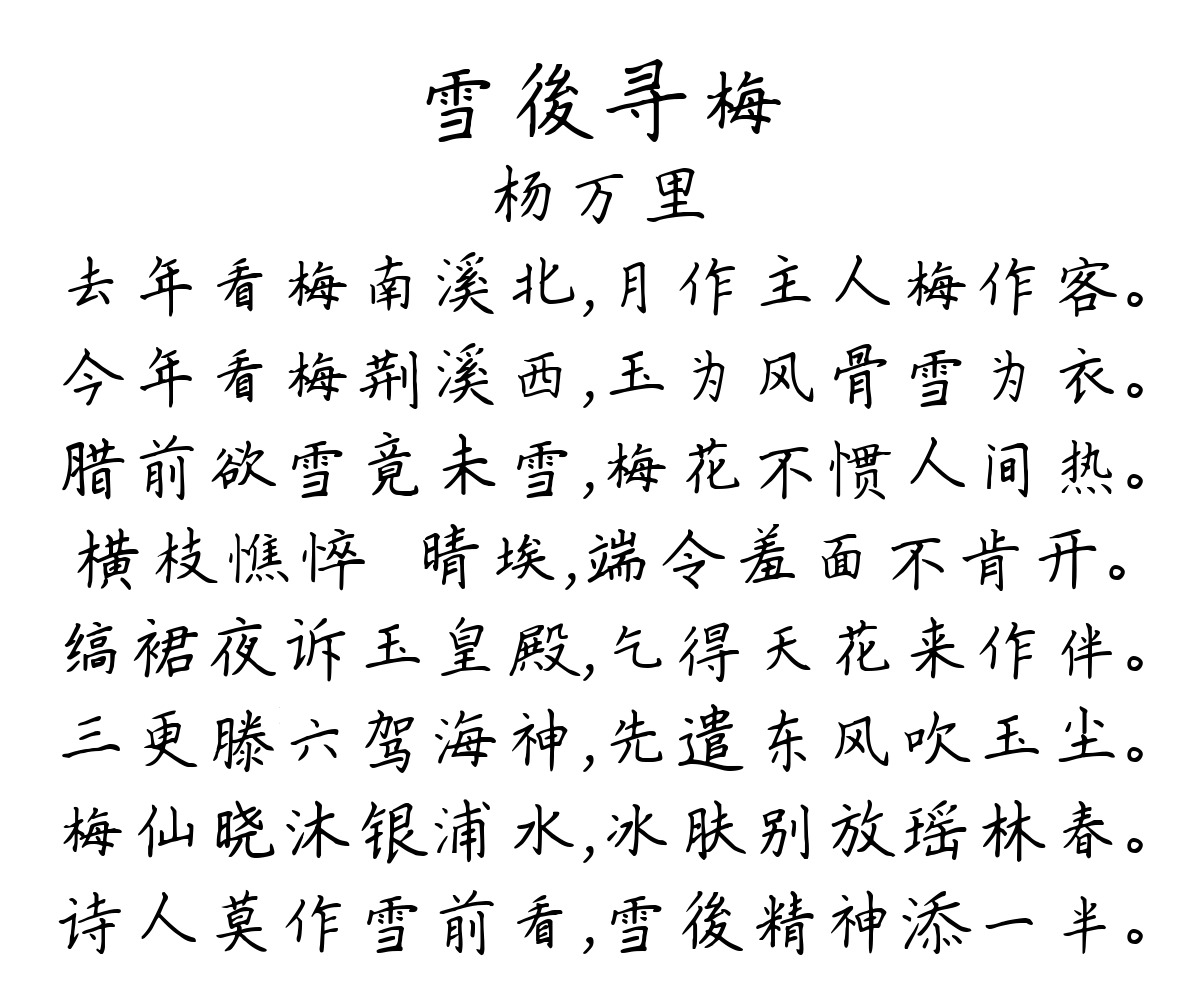 雪後寻梅
杨万里
去年看梅南溪北,月作主人梅作客。
今年看梅荆溪西,玉为风骨雪为衣。
腊前欲雪竟未雪,梅花不惯人间热。
横枝憔悴 晴埃,端令羞面不肯开。
缟裙夜诉玉皇殿,乞得天花来作伴。
三更滕六驾海神,先遣东风吹玉尘。
梅仙晓沐银浦水,冰肤别放瑶林春。
诗人莫作雪前看,雪後精神添一半。